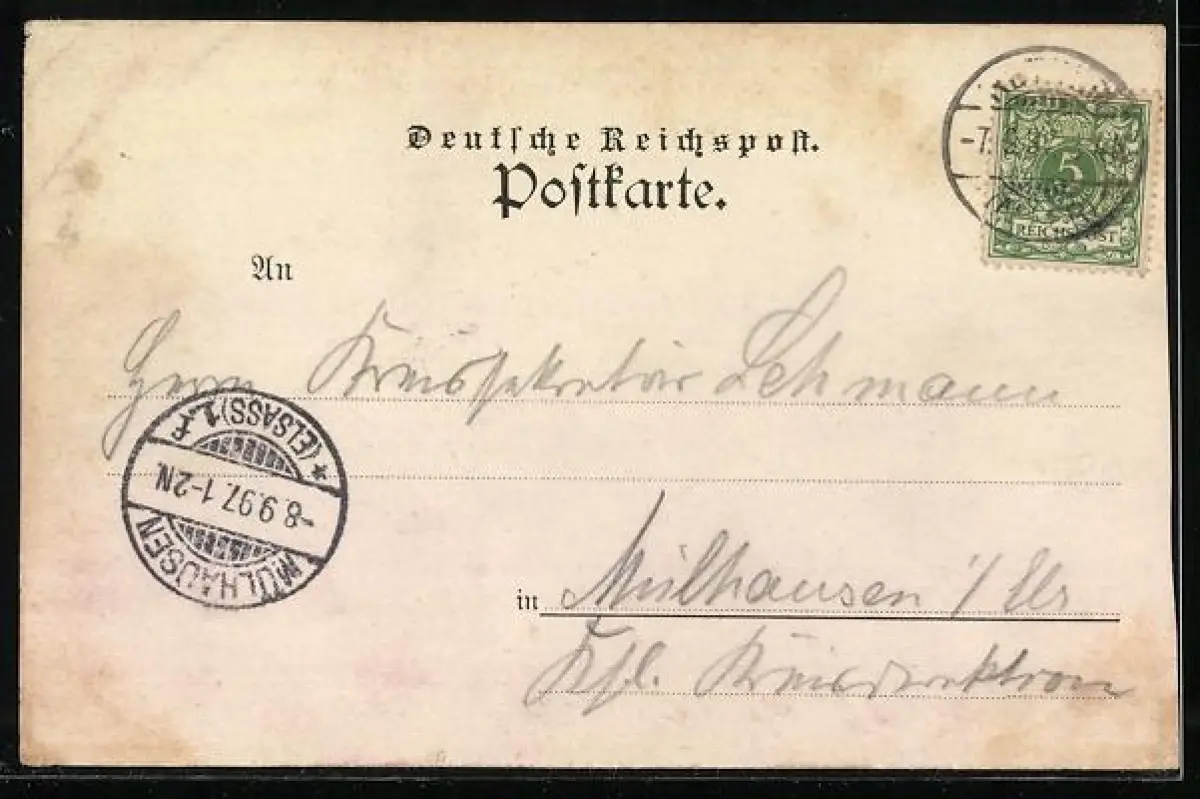 Deutsche Reichspost.
Postkarte.
5
REICHSPOST
An
Herrn Kreissekretär Lehmann
MÜLHAUSEN
-8.9.97. 1-2N.
* (ELSASS) 1. f
in Mülhausen i/ Els
Kreisdirektion